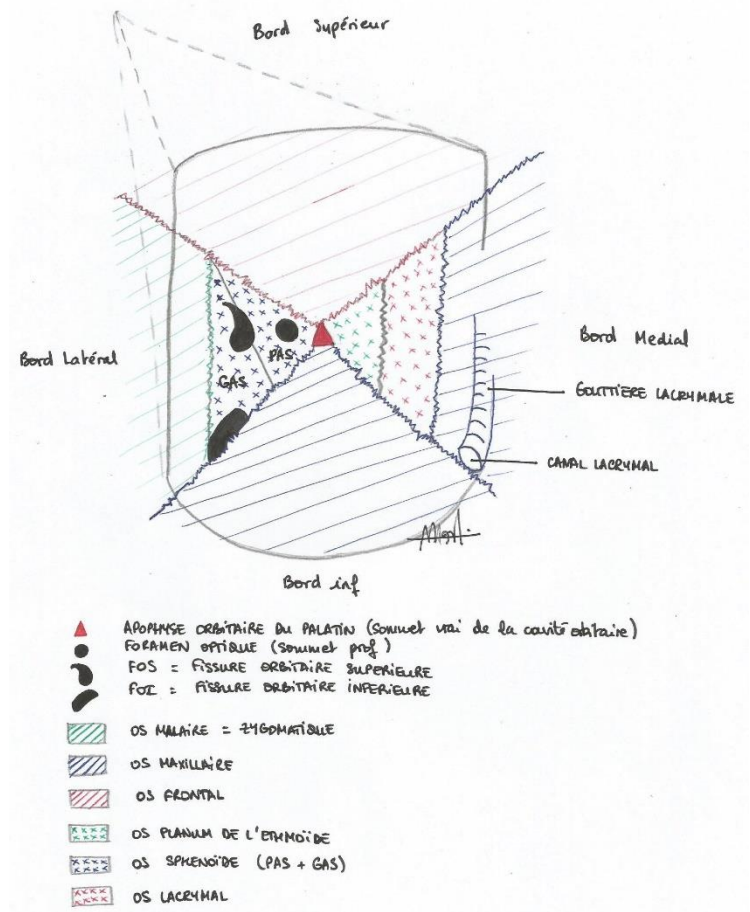 Bord Supérieur
Bord Latéral
PAS
GAS
Bord Medial
GOUTTIÈRE LACRYMALE
CANAL LACRYMAL
Bord inf
APOPHYSE ORBITAIRE DU PALATIN (sommet vrai de la cavité orbitaire)
FORAMEN OPTIQUE (sommet prof)
FOS = FISSURE ORBITAIRE SUPERIEURE
FOI = FISSURE ORBITAIRE INFERIEURE
OS MALAIRE = ZYGOMATIQUE
OS MAXILLAIRE
OS FRONTAL
OS PLANUM DE L'ETHMOÏDE
OS SPHENOÏDE (PAS + GAS)
OS LACRYMAL